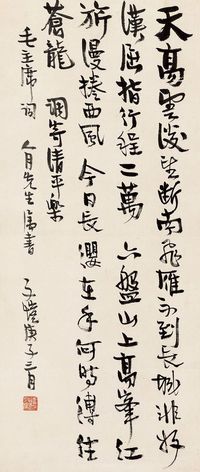 天高雲淡望断南飛雁不到長城非好
漢屈指行程二萬 六盤山上高峯紅
旂漫捲西風 今日長纓在手何時縛住
蒼龍 調寄清平樂
毛主席詞 人月先生属書 子愷庚子三月